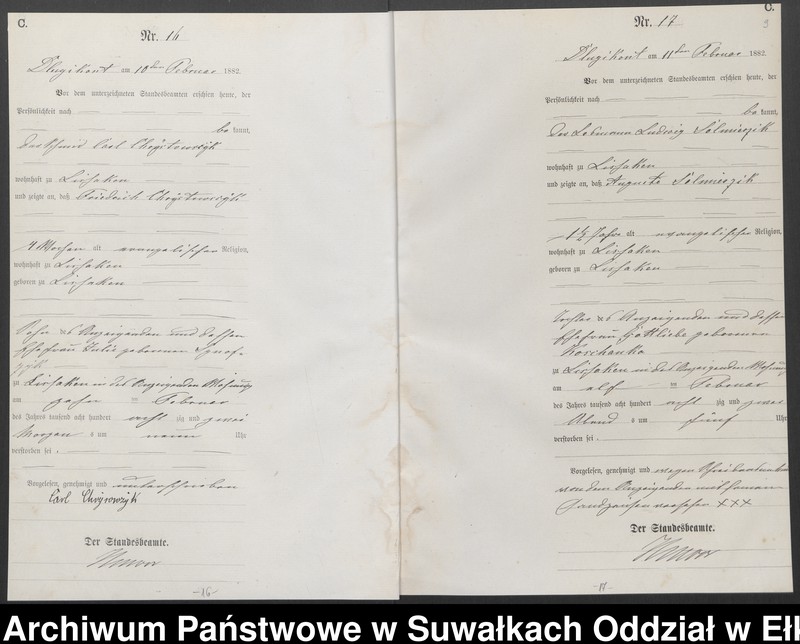 C.
Nr. 16
Dlugikont am 10ten Februar 1882.
Vor dem unterzeichneten Standesbeamten erschien heute, der
Persönlichkeit nach
bekannt,
der Schmid Carl
wohnhaft zu Lissaken
und zeigte an, daß Friedrich
4 Wochen alt evangelischer Religion,
wohnhaft zu Lissaken
geboren zu Lissaken
Sohn des Anzeigenden und dessen
Ehefrau Julie geborenen
zu Lissaken in des Anzeigenden Wohnung
am zehn ten Februar
des Jahrs tausend acht hundert acht zig und zwei
Morgens um neun Uhr
verstorben sei.
Vorgelesen, genehmigt und unterschrieben
Carl
Der Standesbeamte.
-16-
C.
9
Nr. 17
Dlugikont am 11ten Februar 1882.
Vor dem unterzeichneten Standesbeamten erschien heute, der
Persönlichkeit nach
bekannt,
der Losmann Ludwig
wohnhaft zu Lissaken
und zeigte an, daß Auguste
1½ Jahr alt evangelischer Religion,
wohnhaft zu Lissaken
geboren zu Lissaken
Tochter des Anzeigenden und dessen
Ehefrau Gottliebe geborenen
Korzhanka
zu Lissaken in des Anzeigenden Wohnung
am elf ten Februar
des Jahrs tausend acht hundert acht zig und zwei
Abend s um fünf Uhr
verstorben sei.
Vorgelesen, genehmigt und wegen Schreibensunkunde
von dem Anzeigenden mit seinem
Handzeichen versehen XXX
Der Standesbeamte.
-17-
Archiwum Państwowe w Suwałkach Oddział w Ełk